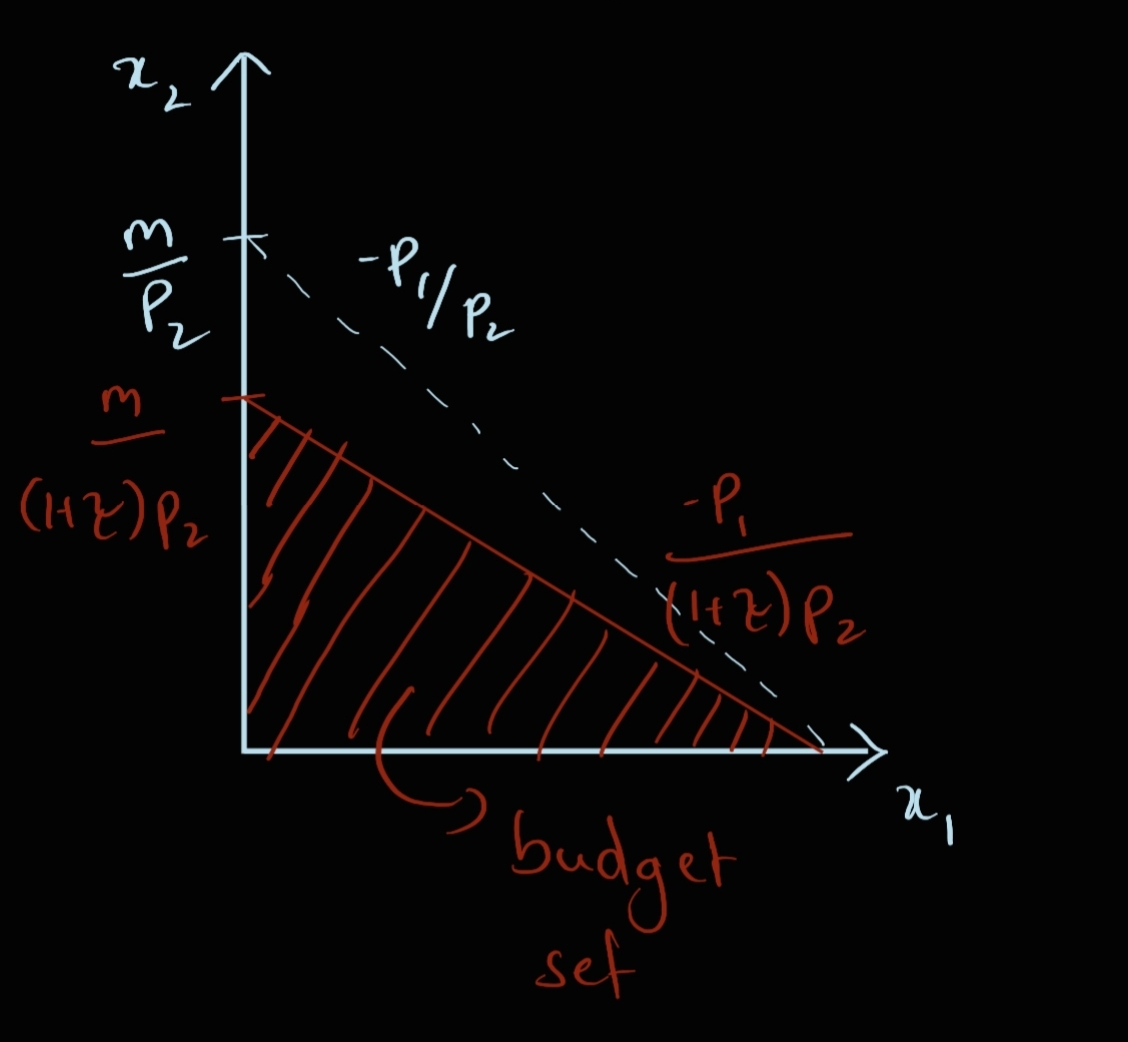 x₂
m
P₂
-P₁/P₂
m
(1+τ)P₂
-P₁
(1+τ)P₂
x₁
budget
set